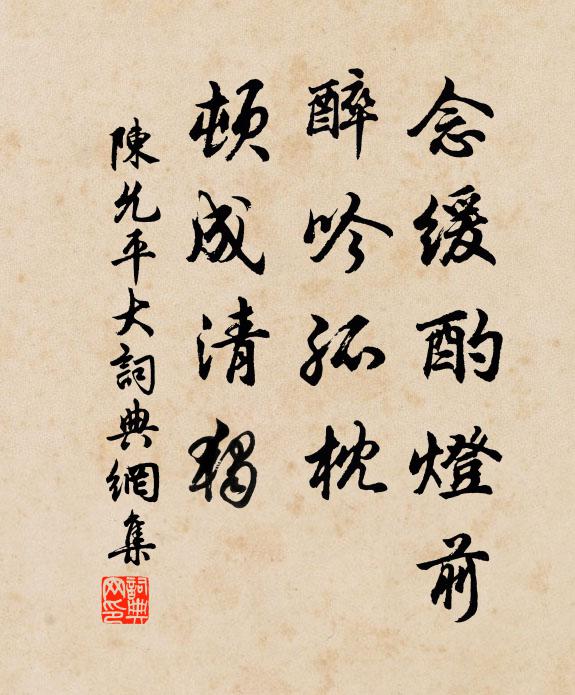 念緩酌燈前
醉吟孤枕
頓成清獨
陳允平大詞典網集
詞典網印